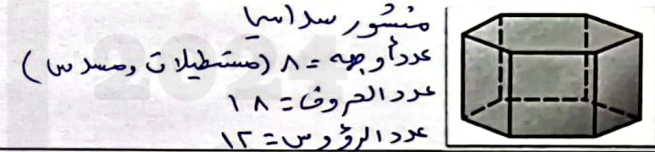 منشور سداسيا
عدد أوجهه = ٨ (مستطيلات ومسدس)
عدد الحروف = ١٨
عدد الرؤوس = ١٢